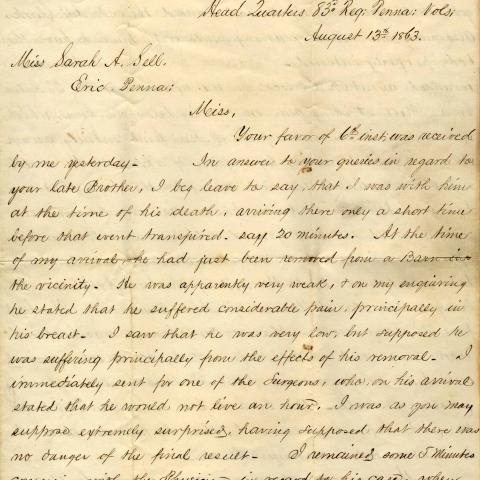 Head Quarters 83d Reg: Penna: Vols:
August 13th 1863.
Miss Sarah A. Sell.
Erie Penna:
Miss,
Your favor of 6th inst, was received
by me yesterday - In answer to your queries in regard to
your late Brother, I beg leave to say, that I was with him
at the time of his death, arriving there only a short time
before that event transpired - say 20 minutes. At the time
of my arrival, he had just been removed from a Barn in
the vicinity - He was apparently very weak, & on my enquiring
he stated that he suffered considerable pain, principally in
his breast - I saw that he was very low, but supposed he
was suffering principally from the effects of his removal - I
immediately sent for one of the Surgeons, who, on his arrival
stated that he would not live an hour. I was as you may
suppose extremely surprised, having supposed that there was
no danger of the final result - I remained some 5 minutes
with the in regard to his case, when